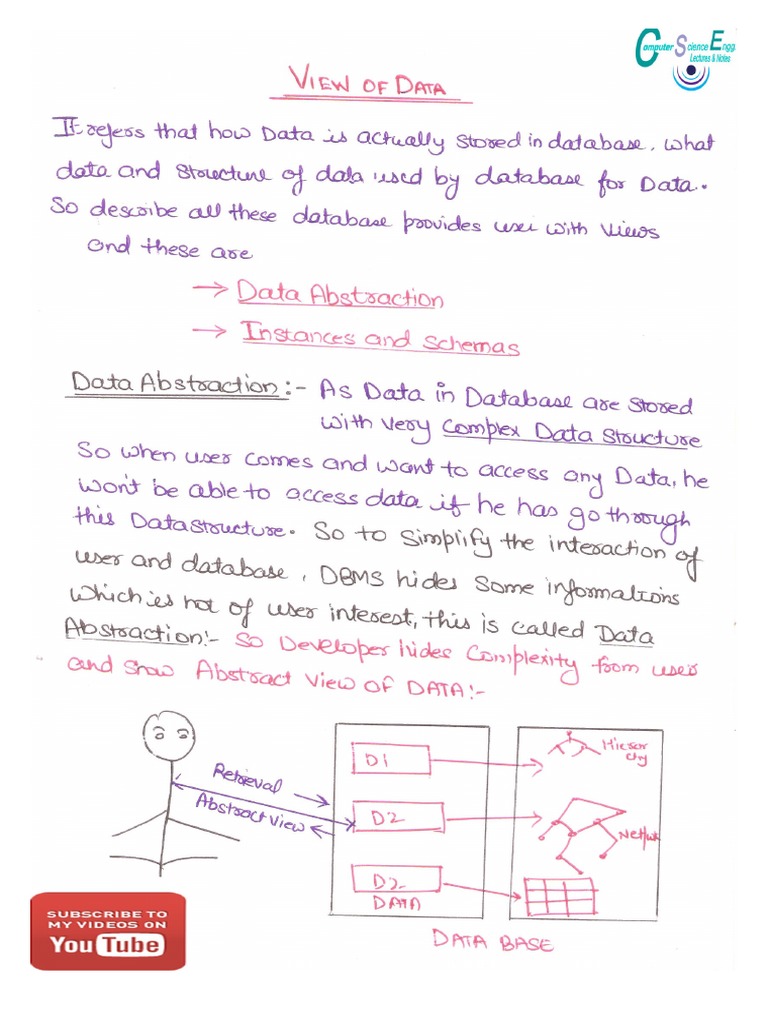 Computer Science Engg.
Lectures & Notes
VIEW OF DATA
It refers that how Data is actually stored in database, what
data and structure of data used by database for Data.
So describe all these database provides user with views
and these are
→ Data Abstraction
→ Instances and schemas
Data Abstraction:- As Data in Database are stored
with very Complex Data Structure
So when user comes and want to access any Data, he
won't be able to access data if he has go through
this Datastructure. So to simplify the interaction of
user and database, DBMS hides some informations
which is not of user interest, this is called Data
Abstraction:- So Developer hides Complexity from user
and show Abstract view of DATA:-
Retrieval
Abstract view
D1
D2
D2
DATA
Hierar
chy
Network
DATA BASE
SUBSCRIBE TO
MY VIDEOS ON
YouTube